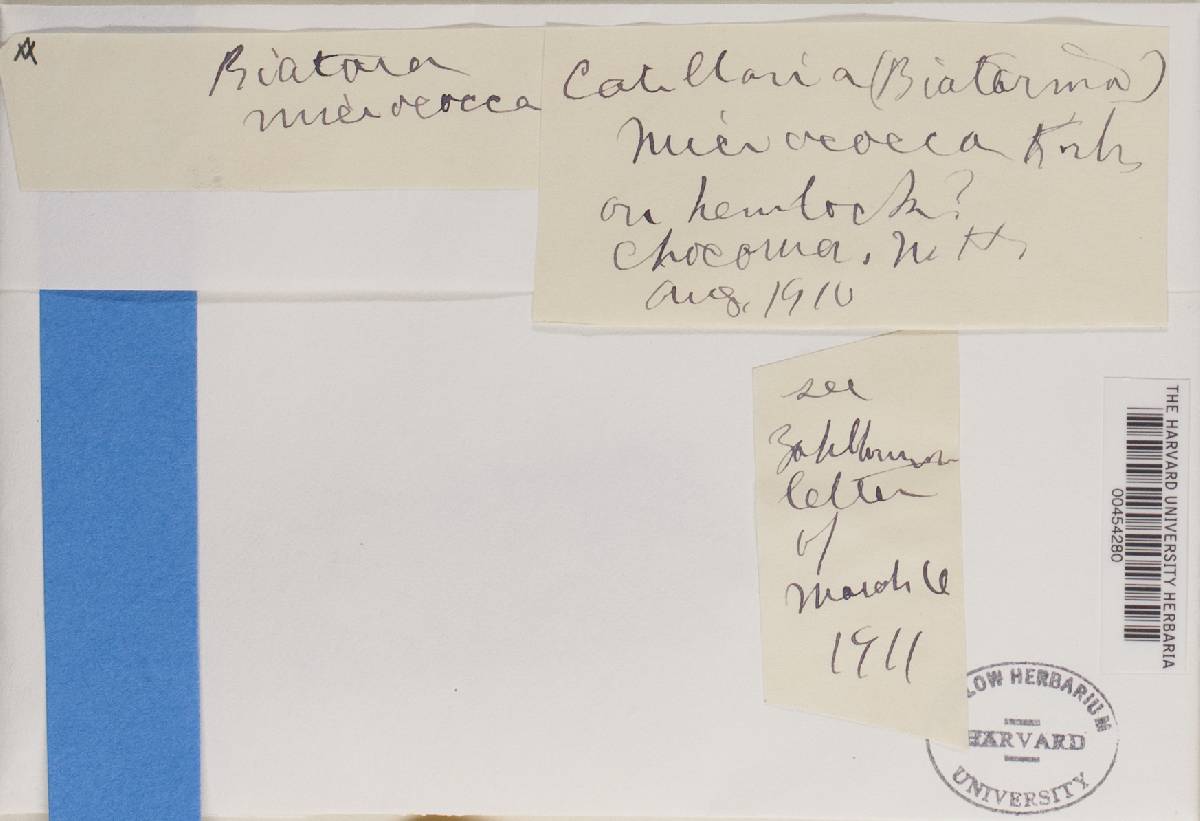 Biatora
micrococca
Catillaria (Biatorina)
micrococca Korb,
on hemlock?
Chocorua, N.H,
Aug, 1910
see
Zahlbruckner
letter
of
March 6
1911
THE HARVARD UNIVERSITY HERBARIA
00454280
LOW HERBARIUM
HARVARD
UNIVERSITY